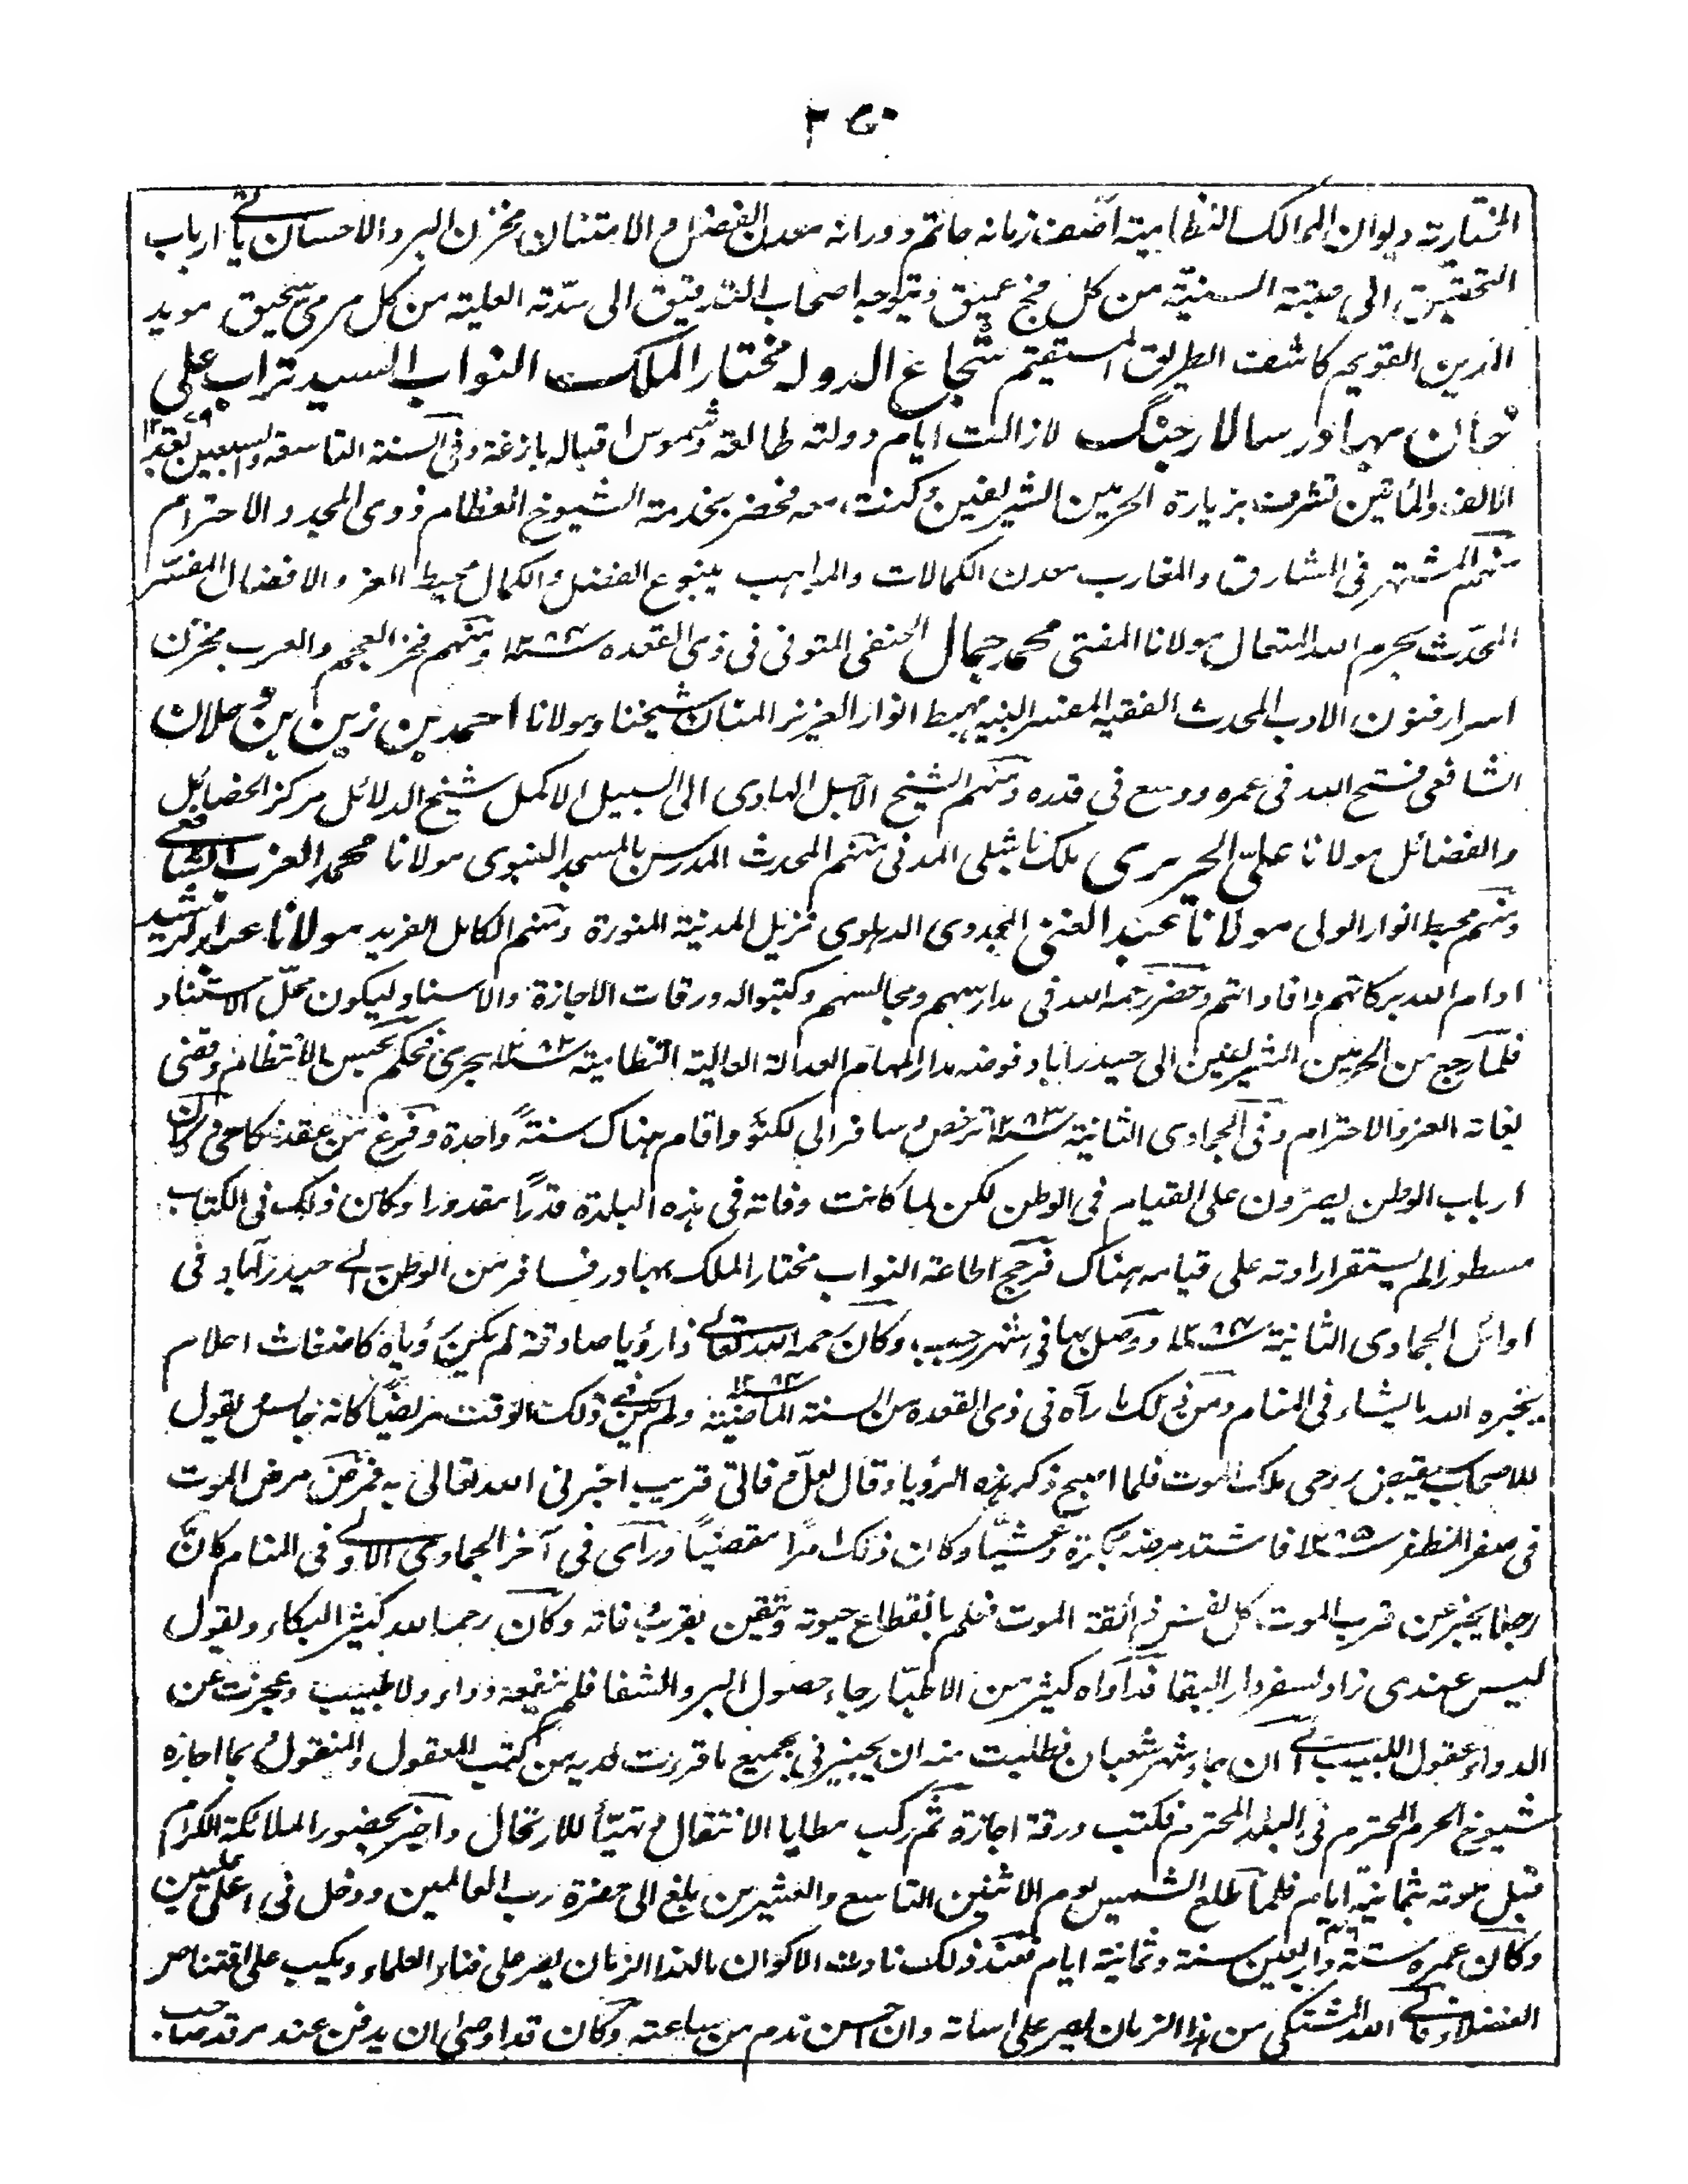 ٢٥٠
المختارية ديوان الممالك النظامية آصف زمانه حاتم دورانه معدن الفضل والامتنان مخزن البر والاحسان ياتي ارباب
التحقيق الى عتبته السنية من كل فج عميق ويتوجه اصحاب التدقيق الى سدّته العلية من كل مرمى سحيق مويد
الدين القويم كاشف الطريق المستقيم شجاع الدوله مختار الملك النواب السيد تراب علي
خان بهادر سالار جنگ لا زالت ايام دولته طالعة وشموس اقباله بازغة وفي السنة التاسعة والسبعين بعد ١٢٧٩
الالف والمأتين تشرف بزيارة الحرمين الشريفين وكنت معه فحضر بخدمة الشيوخ العظام ذوي المجد والاحترام
منهم المشتهر في المشارق والمغارب معدن الكمالات والمواهب ينبوع الفضل والكمال محيط العز والافضال المفسّر
المحدّث بحرم الله المتعال مولانا المفتي محمد جمال الحنفي المتوفى في ذي القعده سنة ١٢٨٤ ومنهم فخر العجم والعرب مخزن
اسرار فنون الادب المحدث الفقيه المفسر النبيه مهبط انوار العزيز المنان شيخنا ومولانا احمد بن زين بن دحلان
الشافعي فسح الله في عمره ووسع في قدره ومنهم الشيخ الاجل الهادي الى السبيل الاكمل شيخ الدلائل مركز الخصائل
والفضائل مولانا علي الحريري ملك باشلي المدني منهم المحدث المدرس بالمسجد النبوي مولانا محمد العزب الشافعي
ومنهم محيط انوار الولي مولانا عبد الغني المجددي الدهلوي نزيل المدينة المنورة ومنهم الكامل الفريد مولانا عبد الرشيد
ادام الله بركاتهم وافاداتهم وحضر رحمه الله في مدارسهم ومجالسهم وكتبوا له ورقات الاجازة والاسناد ليكون محلّ الاستناد
فلمّا رجع من الحرمين الشريفين الى حيدرآباد فوضه مدار المهام العدالة العالية النظامية سنة ١٢٨٢ هجري فحكم بحسن الانتظام وقضى
بغاته العز والاحترام وفي الجمادى الثانية سنة ١٢٨٣ ترخص وسافر الى لكنؤ واقام هناك سنةً واحدة وفرغ من عقد نكاحي وكان
ارباب الوطن يصرّون على القيام في الوطن لكن لما كانت وفاته في هذه البلدة قدرًا مقدورا وكان ذلك في الكتاب
مسطورا لم يستقر ارادته على قيامه هناك فرجح اطاعة النواب مختار الملك بهادر فسافر من الوطن الى حيدرآباد في
اوائل الجمادى الثانية سنة ١٢٨٤ ووصل بها في شهر رجب وكان رحمه الله تعالى ذا رؤيا صادقة لم يكن رؤياه كاضغاث احلام
يخبره الله بما يشاء في المنام ومن ذلك ما رآه في ذي القعدة من السنة الماضية ١٢٨٤ ولم يكن في ذلك الوقت مريضًا كانه جالس يقول
للاصحاب سيقبض روحي ملك الموت فلما اصبح ذكر هذه الرؤيا وقال لعلّ وفاتي قريب اخبرني الله تعالى به فمرض مرض الموت
في صفر المظفر سنة ١٢٨٥ فاشتد مرضه بكرة وعشيّا وكان ذلك امرًا مقضيّا ورآى في آخر الجمادى الاولى في المنام كأنّ
رجلا يخبر عن قرب الموت كل نفس ذائقة الموت فعلم بانقطاع حيوته وتيقن بقرب وفاته وكان رحمه الله كثير البكاء ويقول
ليس عندي زاد لسفر دار البقا فداواه كثير من الاطبّا رجاء حصول البر والشفا فلم ينفعه دواء ولا طبيب وعجزت عن
الدواء عقول اللبيب الى ان جاء شهر شعبان فطلبت منه ان يجيزني بجميع ما قرءت لديه من كتب المعقول والمنقول وبما اجازه
شيوخ الحرم المحترم في البلد المحترم فكتب ورقة اجازة ثم ركب مطايا الانتقال وتهيّأ للارتحال واخبر بحضور الملائكة الكرام
قبل موته بثمانية ايام فلمّا طلع الشمس يوم الاثنين التاسع والعشرين بلغ الى حضرة رب العالمين ودخل في اعلى عليين
وكان عمره ستة واربعين سنة وثمانية ايام فعند ذلك نادته الاكوان ما لهذا الزمان يصر على فناء العلماء ويكيب على اقتناص
الفضلاء فالى الله المشتكى من هذا الزمان يصر على اساته وان احسن ندم من ساعته وكان قد اوصى ان يدفن عند مرقد صاحب